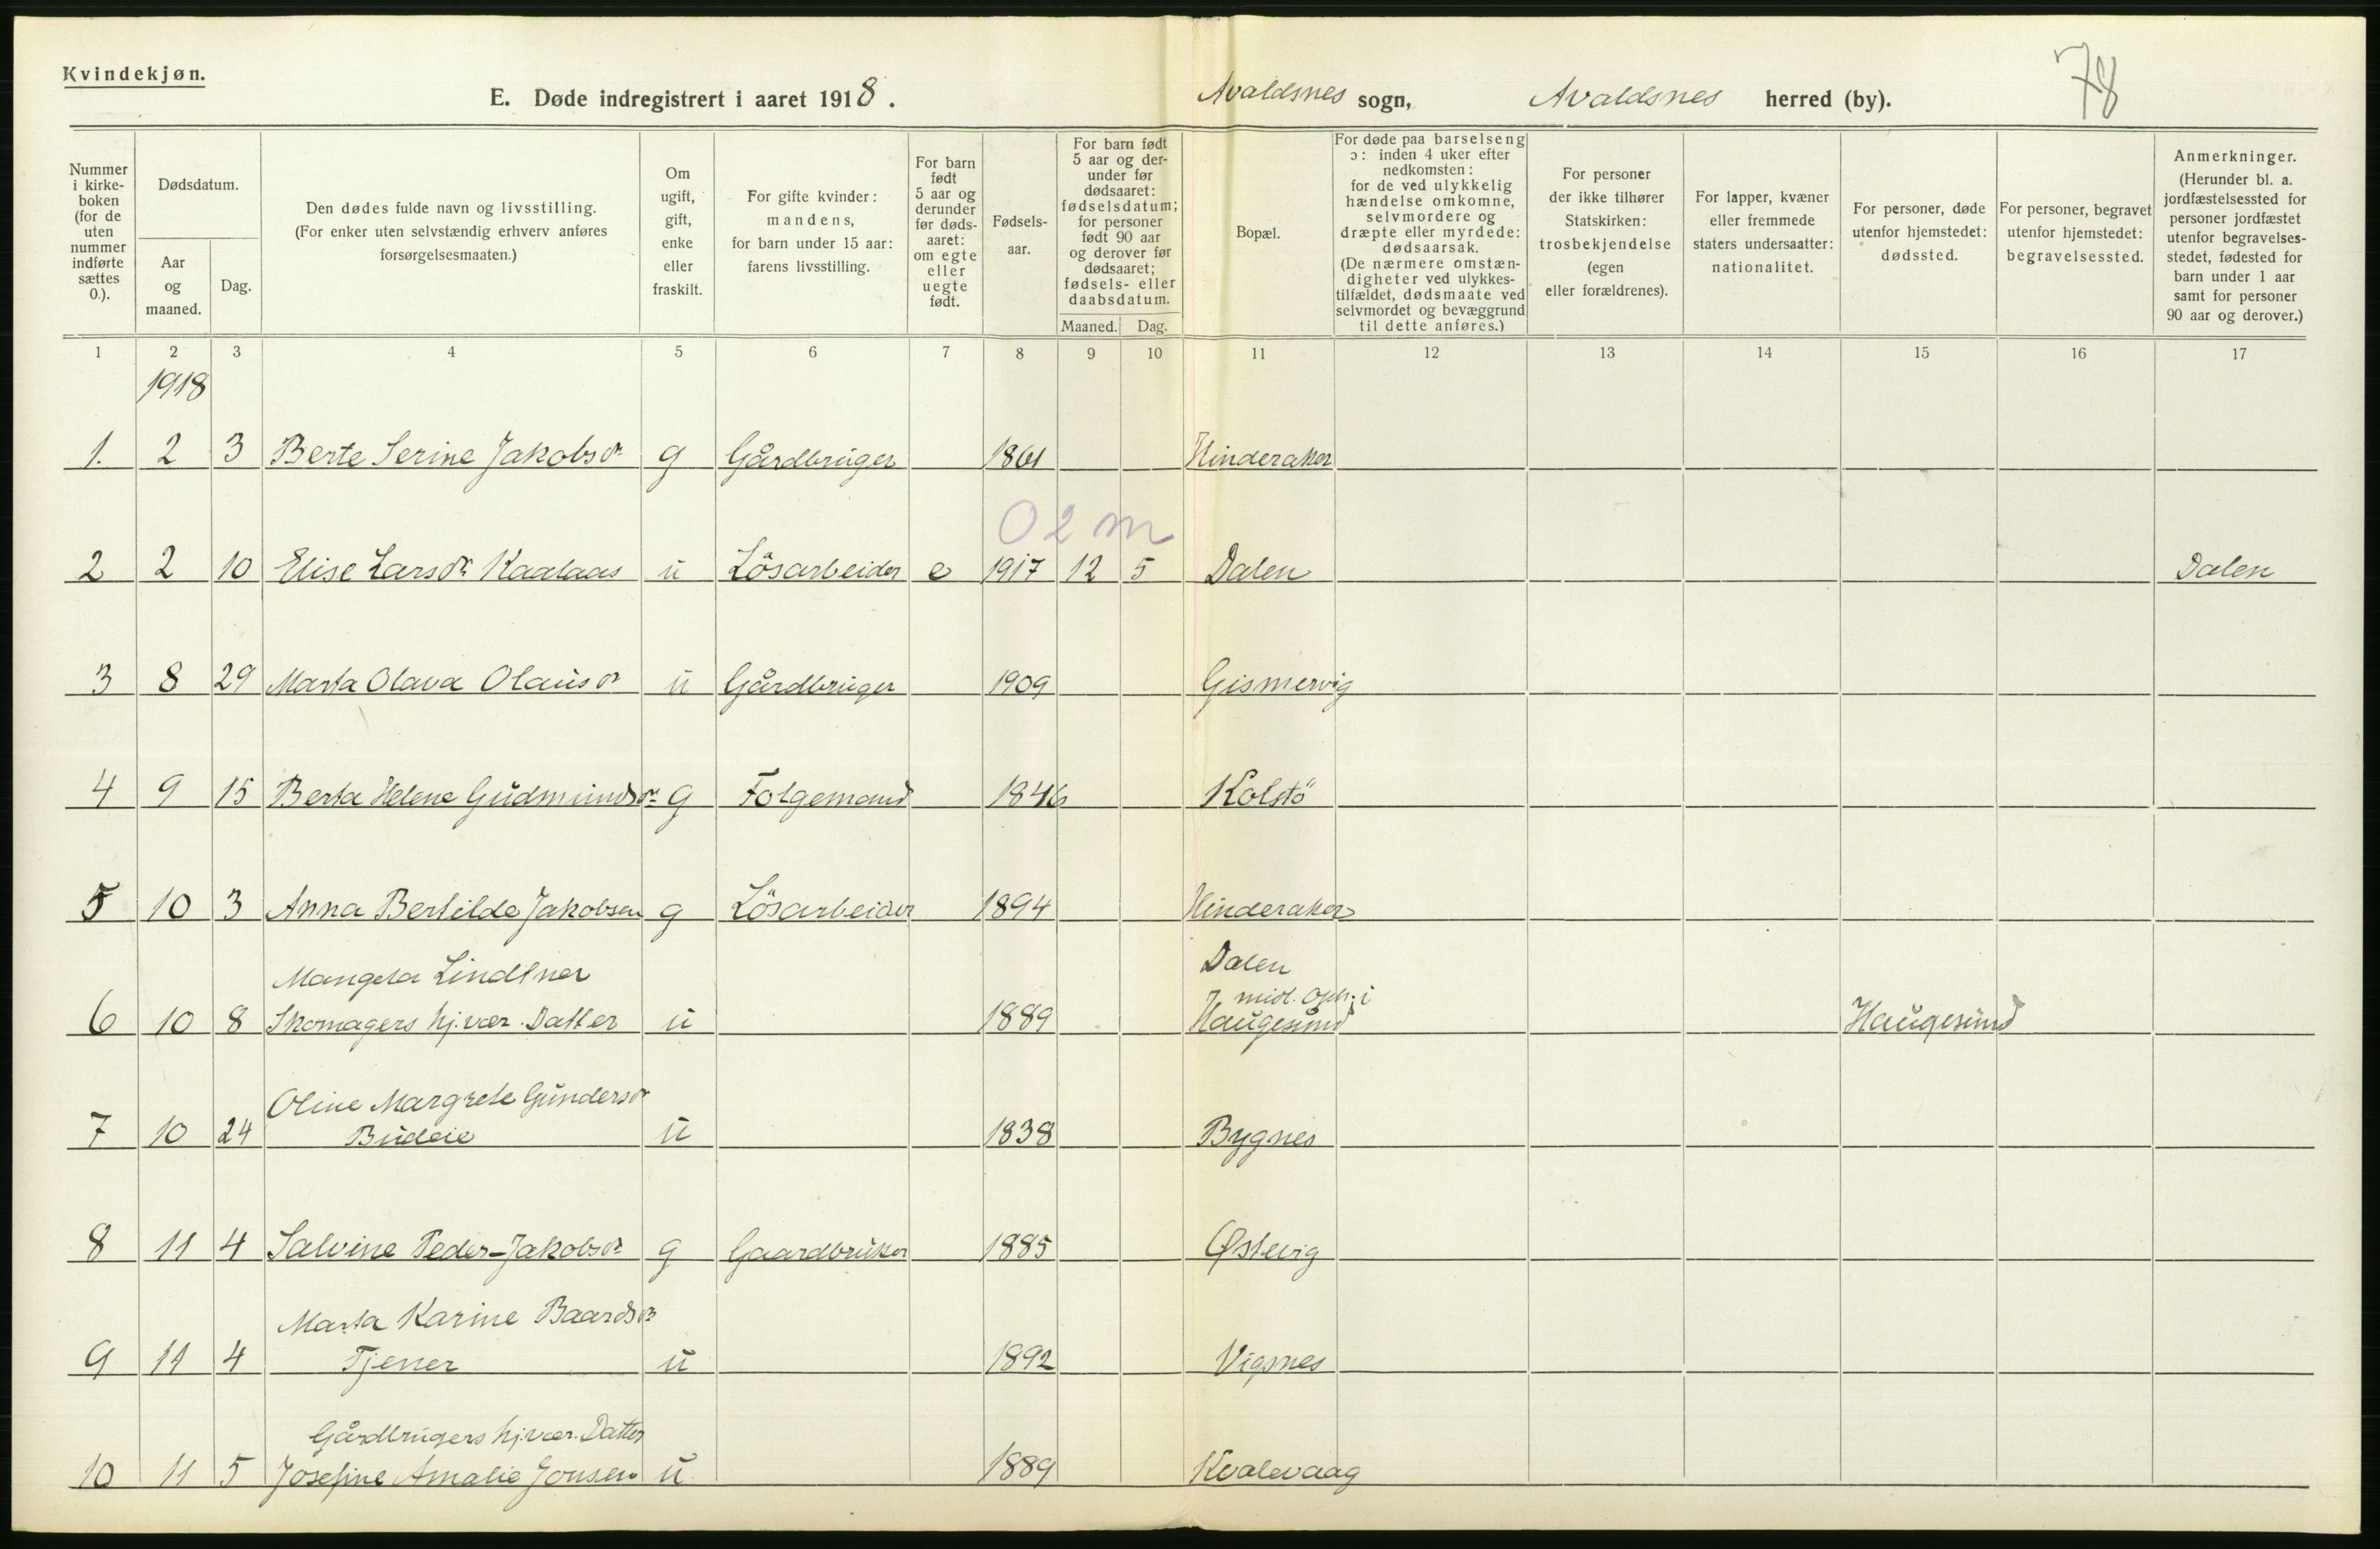 Kvindekjøn.
E. Døde indregistrert i aaret 1918.
Avaldsnes sogn, Avaldsnes herred (by).
78
Nummer i kirke- boken (for de uten nummer indførte sættes 0.).
Dødsdatum.
Aar og maaned.
Dag.
Den dødes fulde navn og livsstilling.
(For enker uten selvstændig erhverv anføres
forsørgelsesmaaten.)
Om ugift, gift, enke eller fraskilt.
For gifte kvinder:
mandens,
for barn under 15 aar:
farens livsstilling.
For barn født 5 aar og derunder før døds- aaret: om egte eller uegte født.
Fødsels- aar.
For barn født 5 aar og der- under før dødsaaret: fødselsdatum; for personer født 90 aar og derover før dødsaaret; fødsels- eller daabsdatum.
Maaned. Dag.
Bopæl.
For døde paa barselseng
ɔ: inden 4 uker efter
nedkomsten:
for de ved ulykkelig
hændelse omkomne,
selvmordere og
dræpte eller myrdede:
dødsaarsak.
(De nærmere omstæn-
digheter ved ulykkes-
tilfældet, dødsmaate ved
selvmordet og bevæggrund
til dette anføres.)
For personer
der ikke tilhører
Statskirken:
trosbekjendelse
(egen
eller forældrenes).
For lapper, kvæner
eller fremmede
staters undersaatter:
nationalitet.
For personer, døde
utenfor hjemstedet:
dødssted.
For personer, begravet
utenfor hjemstedet:
begravelsessted.
Anmerkninger.
(Herunder bl. a.
jordfæstelsessted for
personer jordfæstet
utenfor begravelses-
stedet, fødested for
barn under 1 aar
samt for personer
90 aar og derover.)
1 2 3 4 5 6 7 8 9 10 11 12 13 14 15 16 17
1918
1. 2 3 Berte Serine Jakobsdr g Gårdbruger 1861 Hinderaker
0 2 m
2 2 10 Elise Larsdr Kaalaas u Lösarbeider e 1917 12 5 Dalen Dalen
3 8 29 Marta Olava Olausdr u Gårdbruger 1909 Gismervig
4 9 15 Berta Helene Gudmundsdr g Folgemand 1846 Kolstö
5 10 3 Anna Bertilde Jakobsen g Lösarbeider 1894 Hinderaker
Mangela Lindtner Dalen
midl. Oph. i
6 10 8 Skomagers hj.vær. Datter u 1889 Haugesund Haugesund
Oline Margrete Gundersdr
7 10 24 Budeie u 1838 Bygnes
8 11 4 Salvine Peder-Jakobsdr g Gaardbruker 1885 Østevig
Marta Karine Baardsdr
9 11 4 Tjener u 1892 Vigsnes
Gårdbrugers hj.vær. Datter
10 11 5 Josefine Amalie Jonsen u 1889 Kvalevaag